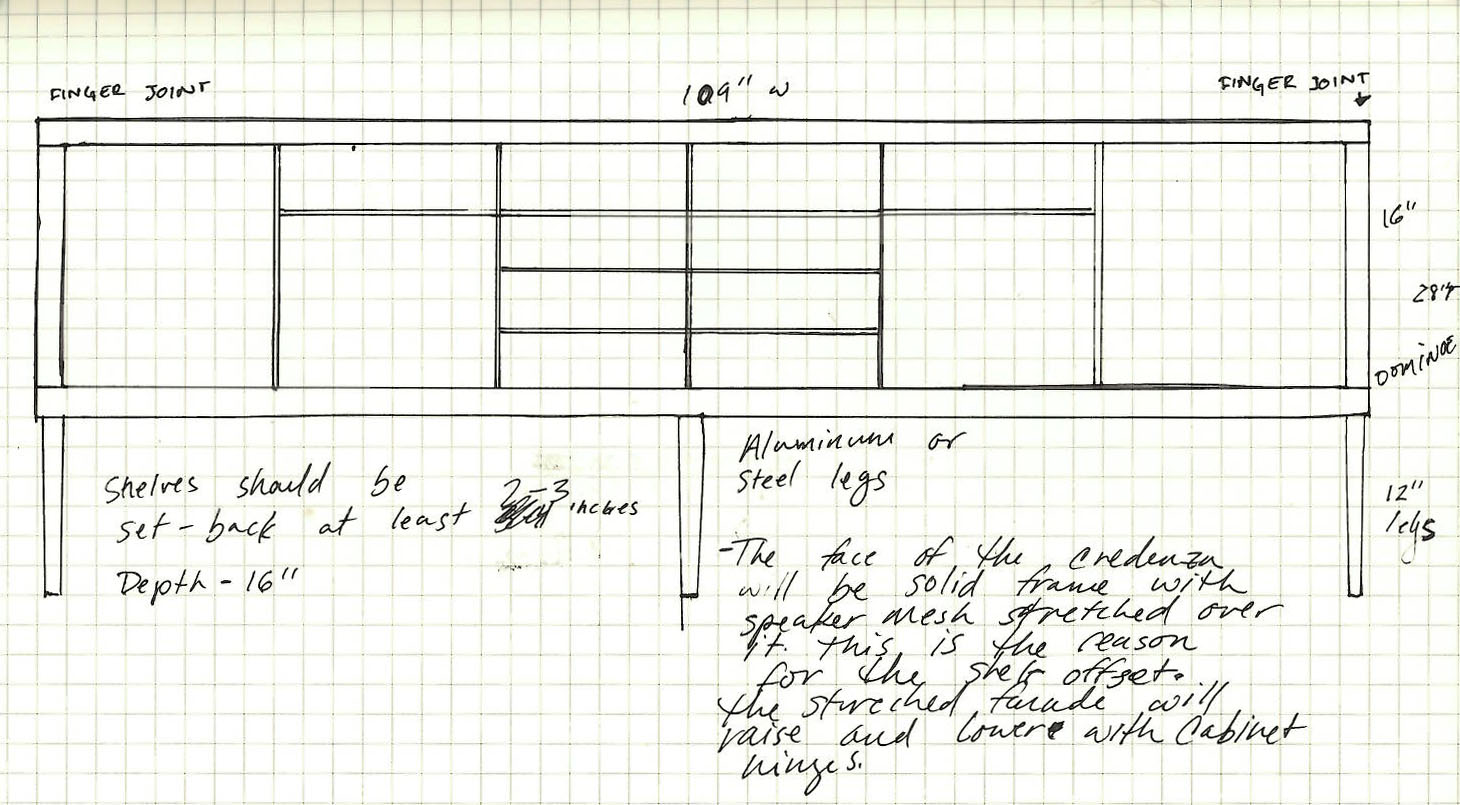 FINGER JOINT
109" W
FINGER JOINT
16"
28"
DOMINOE
Aluminum or
Steel legs
12"
legs
Shelves should be
set-back at least 2-3 inches
Depth - 16"
-The face of the credenza
will be solid frame with
speaker mesh stretched over
it. this is the reason
for the shelf offset.
the streched facade will
raise and lower with cabinet
hinges.